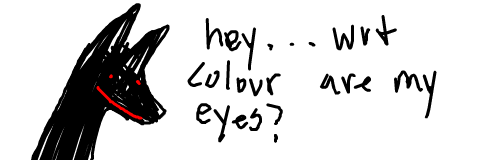 hey... wrt
colour are my
eyes?